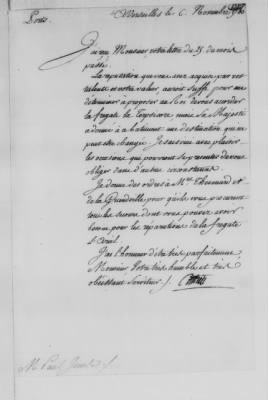 Ports.
à Versailles le 6. Novembre 1780
J'ai reçu Monsieur votre lettre du 25. du mois
passé.
La réputation que vous avez acquise par vos
talens et votre valeur auroit suffi pour me
déterminer à proposer au Roi de vous accorder
la fregate la Terpsicore, mais Sa Majesté
a donné à ce batiment une destination qui ne
peut etre changée. Je saisirai avec plaisir
les occasions qui pourront se presenter de vous
obliger dans d'autres circonstances.
Je donne des ordres à Mrs. Thevenard et
de la Grandville pour qu'ils vous procurent
tous les secours dont vous pouvez avoir
besoin pour les réparations de la fregate
l'Ariel.
J'ai l'honneur d'etre très parfaitement
Monsieur Votre très humble et très
obeissant Serviteur.
M. Paul Jones